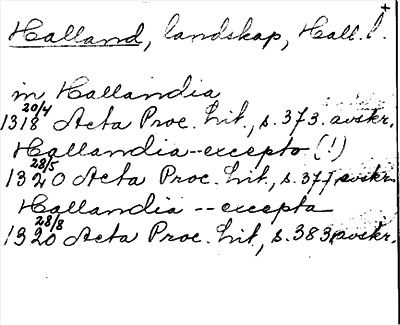 Halland, landskap, Hall. l. +
in Hallandia
1318 20/4 Acta Proc. lit., s. 373. avskr.
Hallandia--excepto (!)
1320 28/5 Acta Proc. lit., s. 377 avskr.
Hallandia -- excepta
1320 28/8 Acta Proc. lit., s. 383, avskr.